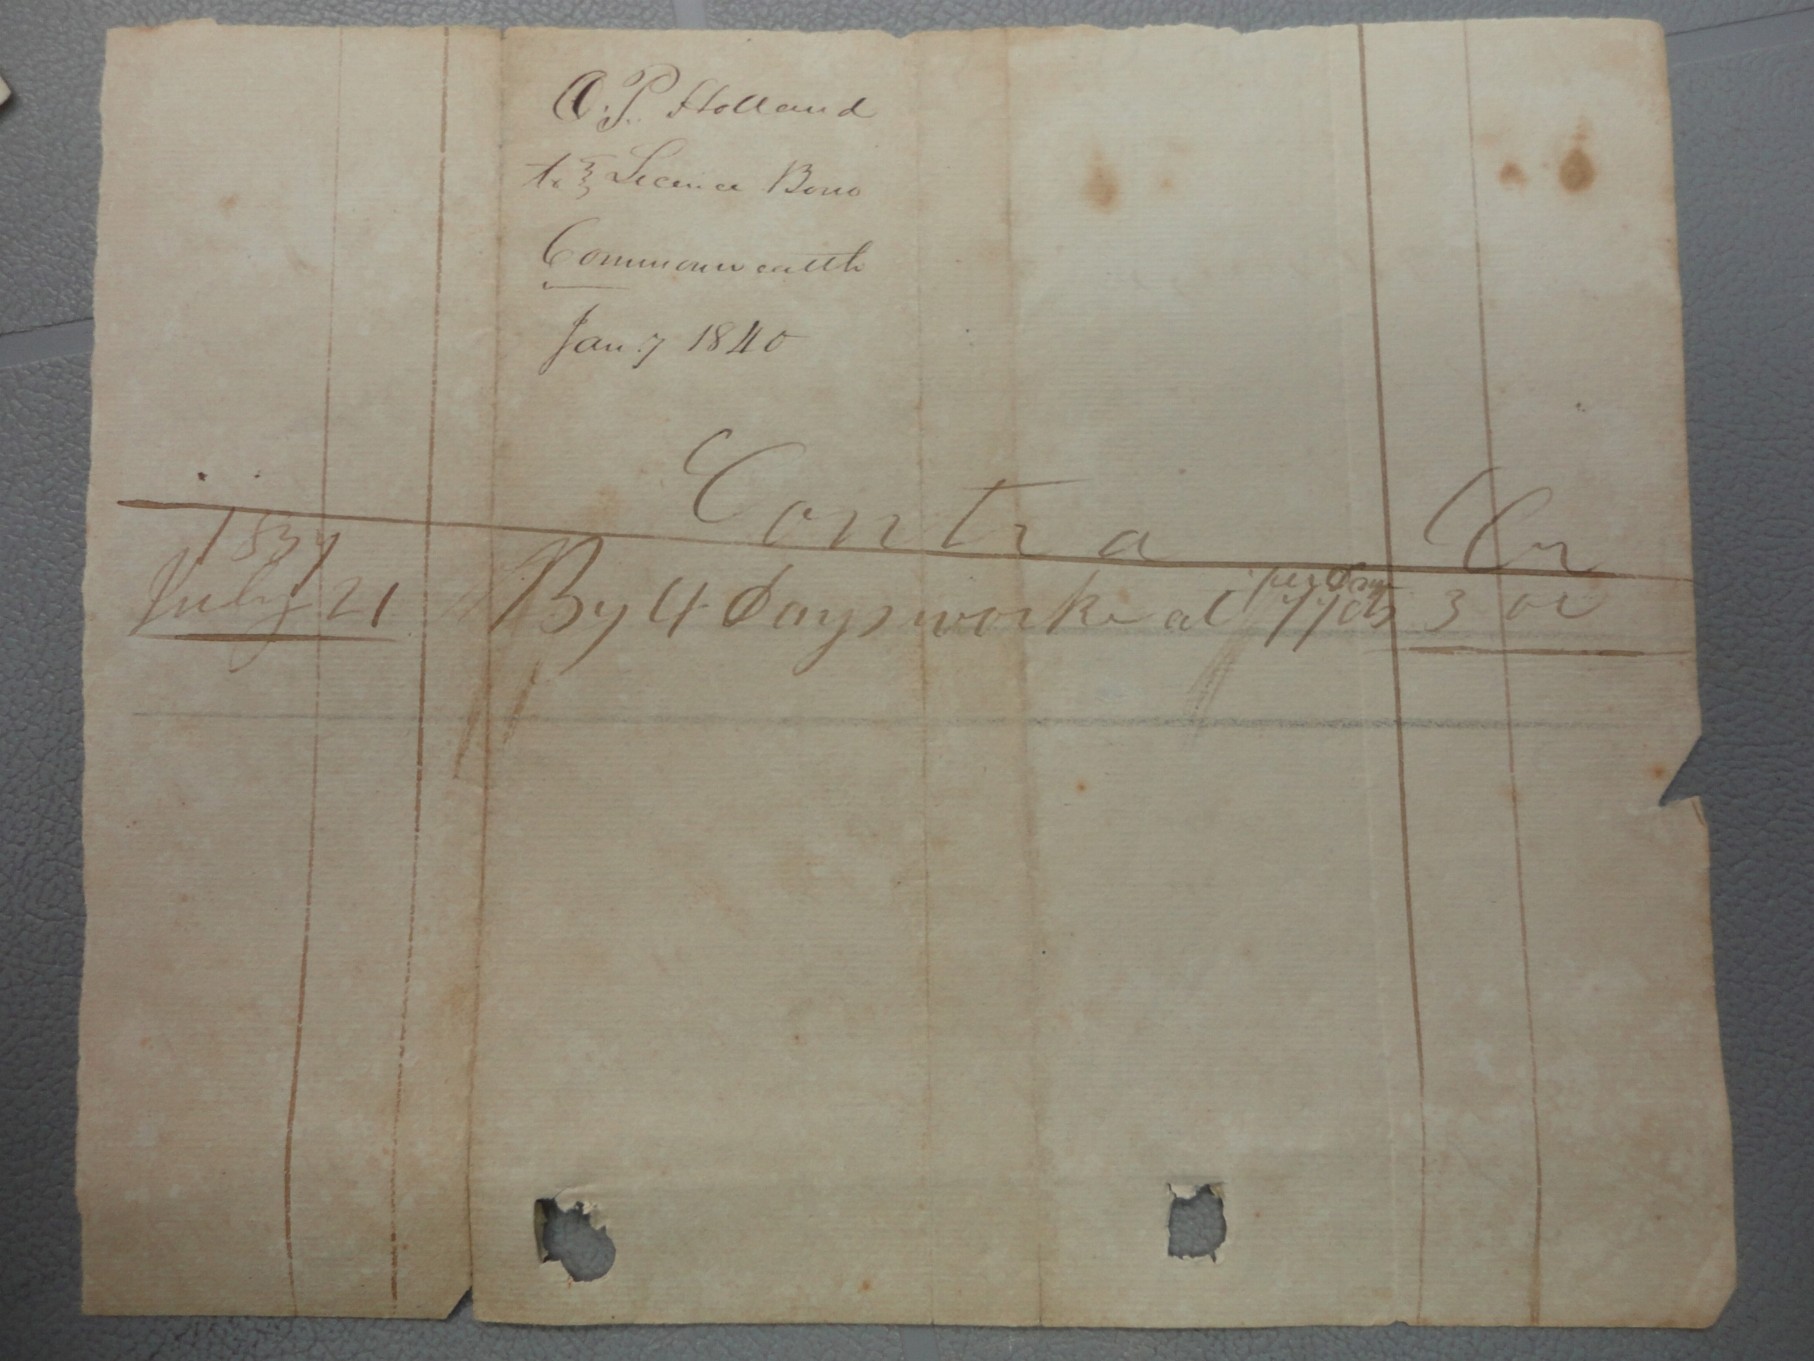 O. P. Holland
to } Licence Bond
Commonwealth
Jan 7 1840
Contra Cr
1839
July 21 By 4 Days worke at 77 cts per Day 3 01